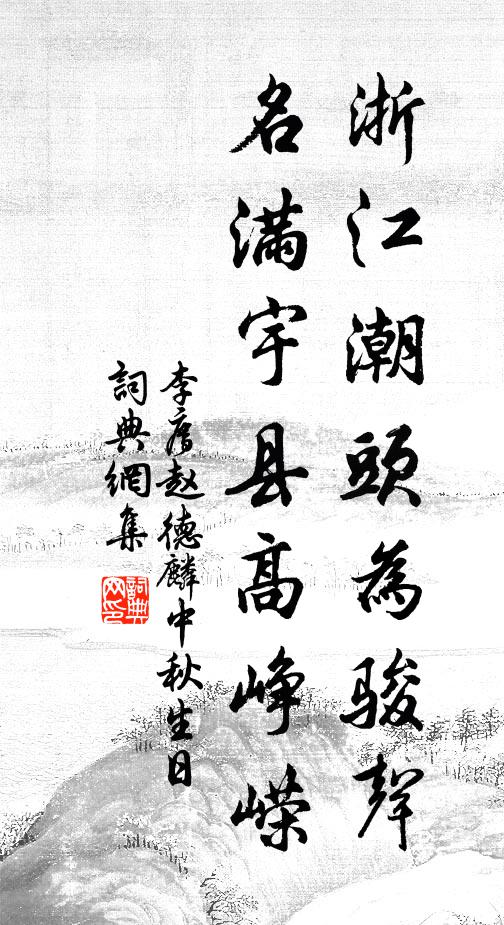 浙江潮頭為駿聲
名滿宇县高峥嵘
李廌赵德麟中秋生日
詞典網集
詞典網印